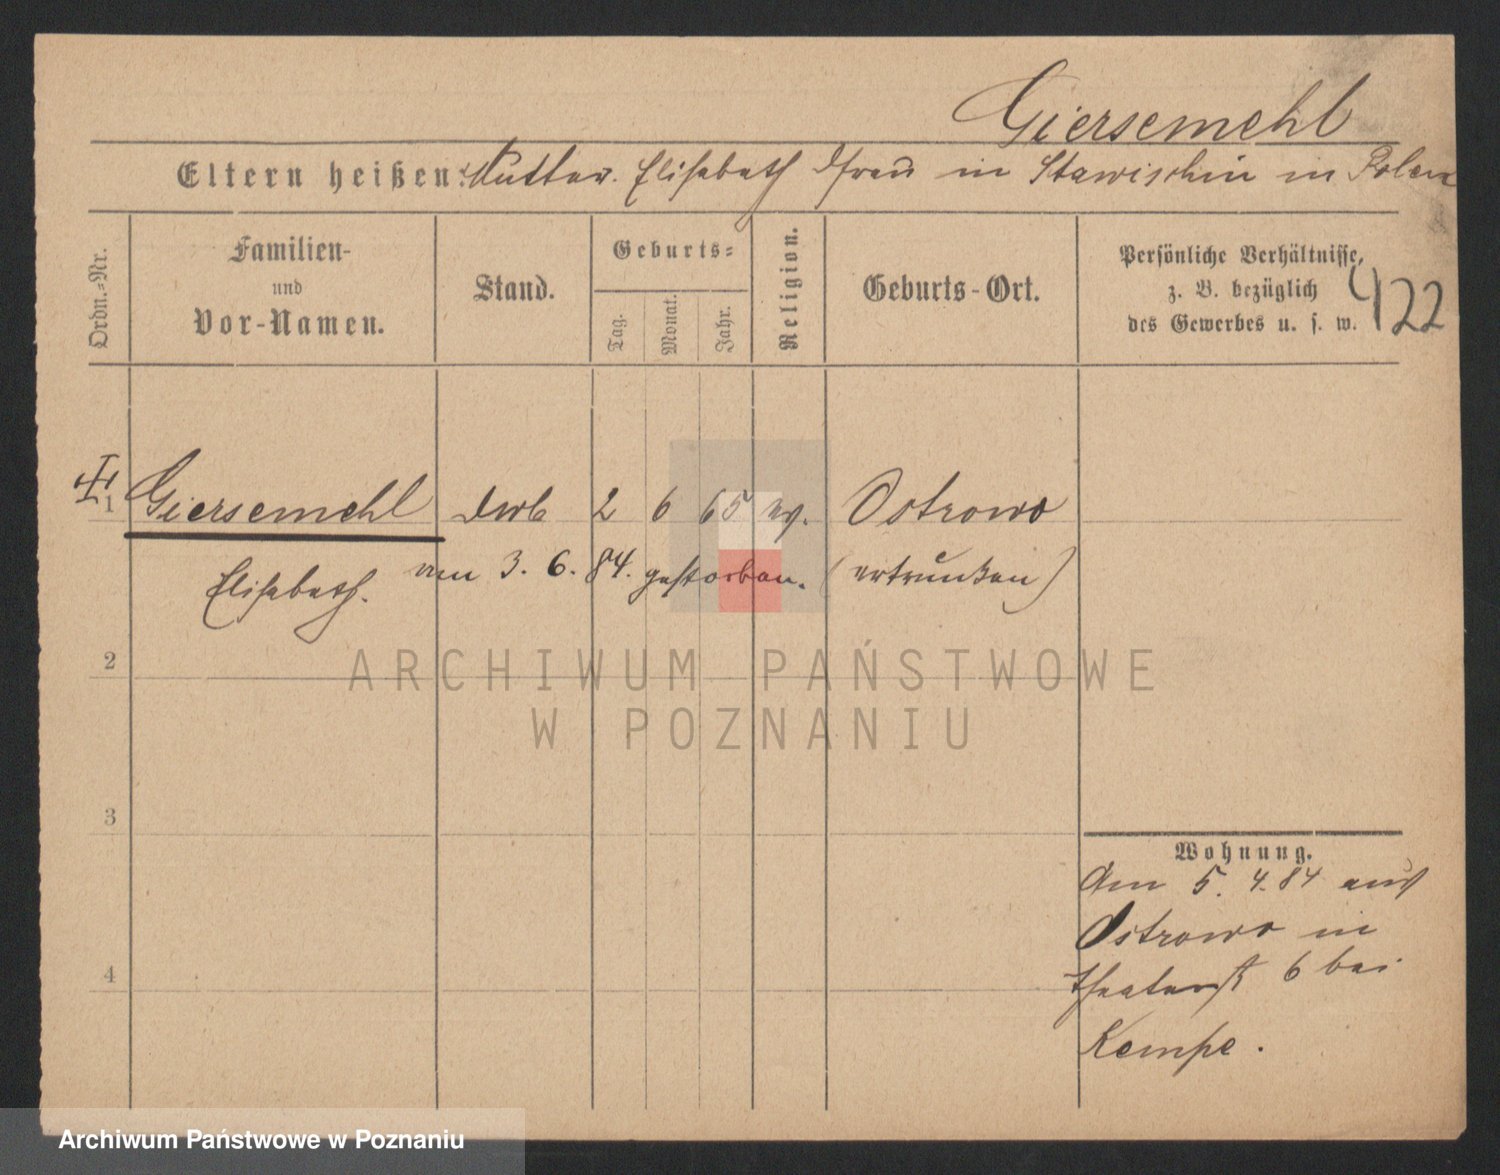 Giersemehl
Eltern heißen: Mutter. Elisabeth in Stawischin in Polen
Ordn.-Nr.
Familien-
und
Vor-Namen.
Stand.
Geburts-
Tag.
Monat.
Jahr.
Religion.
Geburts-Ort.
Persönliche Verhältnisse,
z. B. bezüglich
des Gewerbes u. s. w.
422
1 Giersemehl 2 6 65 ev. Ostrowo
Elisabeth. am 3. 6. 84. gestorben. (ertrunken)
2
3
4
Wohnung.
Am 5. 4. 84 aus
Ostrowo in
Theaterst 6 bei
Kempe.
ARCHIWUM PAŃSTWOWE
W POZNANIU
Archiwum Państwowe w Poznaniu